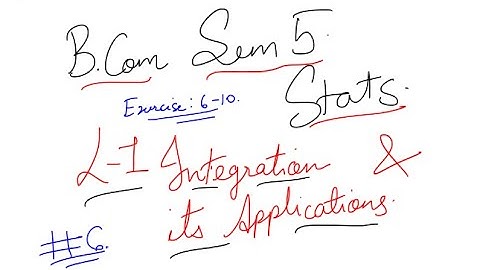 B.Com Sem 5.
Stats.
Exercise: 6-10.
L-1 Integration &
its Applications.
#6.